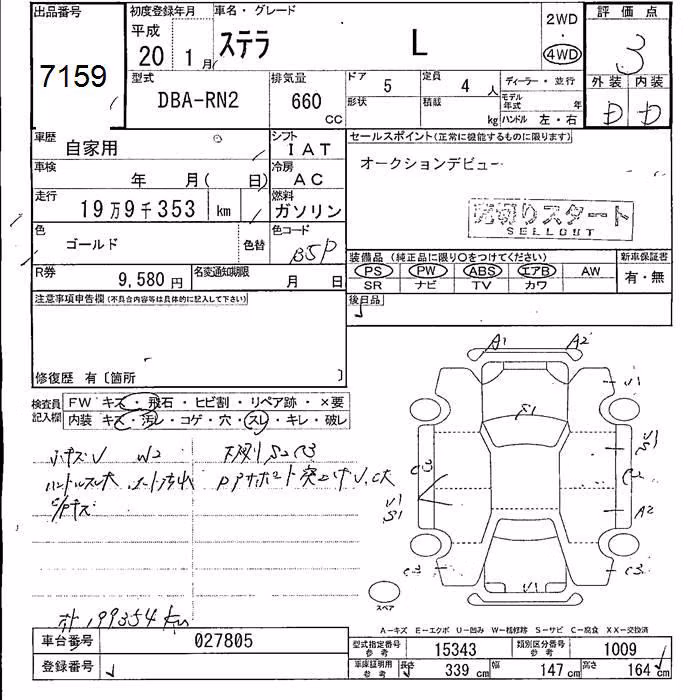 出品番号
7159
初度登録年月
平成
20 1月
車名・グレード
ステラ L
2WD
・
4WD
評価点
3
外装 内装
D D
型式
DBA-RN2
排気量
660
CC
ドア 5
定員 4 人
ディーラー・並行
形状
積載 kg
モデル年式 年
ハンドル 左・右
車歴
自家用
シフト
IAT
車検
年 月( 日)
冷房
AC
走行
19万9千353 km
燃料
ガソリン
色
ゴールド
色替
色コード
B5P
R券
9,580 円
名変通知期限
月 日
セールスポイント(正常に機能するものに限ります)
オークションデビュー
売切りスタート
SELLOUT
装備品(純正品に限り〇をつけてください)
新車保証書
PS PW ABS エアB AW
SR ナビ TV カワ
有・無
後日品
注意事項申告欄(不具合内容等は具体的に記入して下さい)
修復歴 有〔箇所 〕
検査員
記入欄
FW キズ・飛石・ヒビ割・リペア跡・×要
内装 キズ・汚レ・コゲ・穴・スレ・キレ・破レ
小キズV W2
下廻りS2C3
ハンドルスレ大 シート汚れ
PPサポート突上げV,C大
C/Pキズ
A1 A2
V1
S1
V1
S1
C2
C2
V1
S1
A2
C2
C3
V1
スペア
計199354km
A-キズ E-エクボ U-凹み W-補修跡 S-サビ C-腐食 XX-交換済
車台番号
027805
型式指定番号
参考
15343
類別区分番号
参考
1009
登録番号
車庫証明用
参考
長さ 339 cm
幅 147 cm
高さ 164 cm